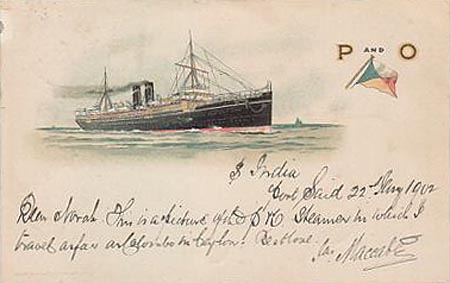 P AND O
India
Port Said 22nd 1902
Dear Norah. This is a picture of the Steamer in which I
travel as far as Colombo in Ceylon.
Jas. Maccabe